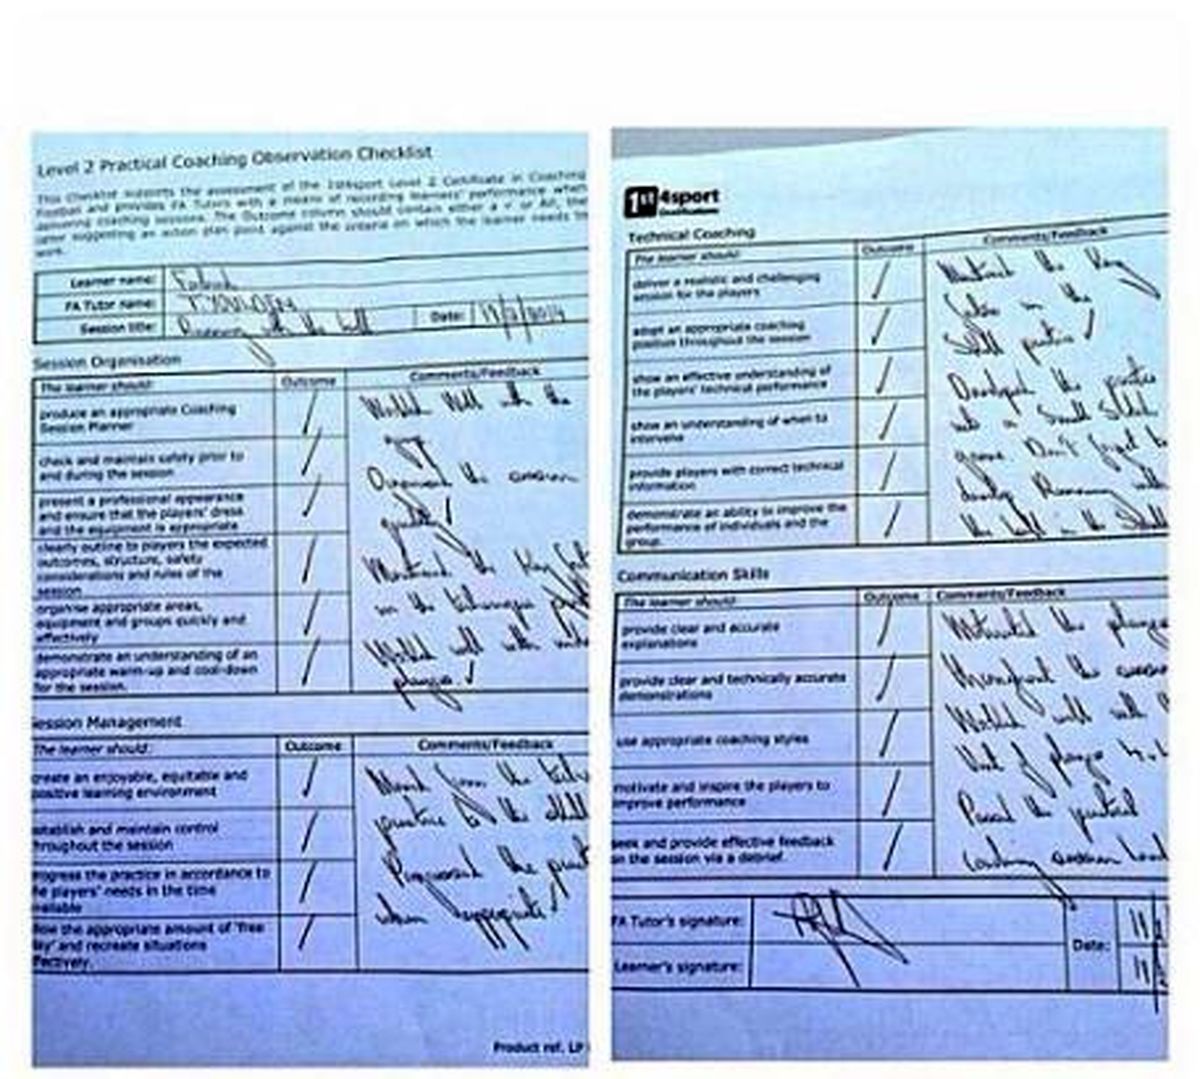 Level 2 Practical Coaching Observation Checklist
This checklist supports the assessment of the 1st4sport Level 2 Certificate in Coaching
Football and provides FA Tutors with a means of recording learners' performance when
delivering coaching sessions. The Outcome column should contain either a ✓ or the
suggesting an action plan point against the criteria on which the learner needs to
work.
Learner name:
FA Tutor name:
Session title: Running with the ball Date: /2014
Session Organisation
The learner should: Outcome Comments/Feedback
produce an appropriate Coaching
Session Planner
✓
Worked Well with the
group
check and maintain safety prior to
and during the session
✓
Organised the
present a professional appearance
and ensure that the players' dress
and the equipment is appropriate
✓
✓
clearly outline to players the expected
outcomes, structure, safety
considerations and rules of the
session
✓
Mentioned the Key
organise appropriate areas,
equipment and groups quickly and
effectively
✓
in the technique
demonstrate an understanding of an
appropriate warm-up and cool-down
for the session.
✓
Worked well with
players ✓
ession Management
The learner should: Outcome Comments/Feedback
create an enjoyable, equitable and
ositive learning environment
✓
Moved from the
stablish and maintain control
hroughout the session
✓
practice to the skill
rogress the practice in accordance to
he players' needs in the time
vailable
✓
Progressed the
llow the appropriate amount of 'free
lay' and recreate situations
ffectively.
✓
when appropriate ✓
Product ref. LP
1st4sport
Qualifications
Technical Coaching
The learner should: Outcome Comments/Feedback
deliver a realistic and challenging
session for the players
✓
Mentioned the Key
adopt an appropriate coaching
position throughout the session
✓
in the
Skill practice ✓
show an effective understanding of
the players' technical performance
✓
Developed the practice
show an understanding of when to
intervene
✓
into a Small Sided
game Don't forget to
provide players with correct technical
information
✓
develop Running with
demonstrate an ability to improve the
performance of individuals and the
group.
✓
the ball in the Small
Communication Skills
The learner should: Outcome Comments/Feedback
provide clear and accurate
explanations
✓
Motivated the players
provide clear and technically accurate
demonstrations
✓
Managed the
use appropriate coaching styles
✓
Worked well with
motivate and inspire the players to
improve performance
✓
of players
Passed the practical
seek and provide effective feedback
on the session via a debrief.
✓
Coaching session
FA Tutor's signature: Date: 11/
Learner's signature: 11/